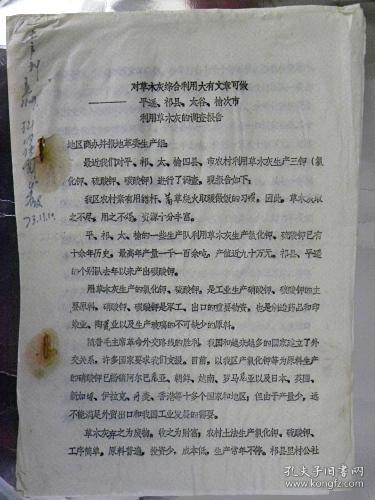 对草木灰综合利用大有文章可做
——平遥、祁县、太谷、榆次市
利用草木灰的调查报告
地区商办并报地革委生产组:
最近我们对平、祁、太、榆四县、市农村利用草木灰生产三钾(氯
化钾、硫酸钾、碳酸钾)进行了调查,现报告如下:
我区农村素有用秸秆、蒿草烧火取暖做饭的习惯,因此,草木灰取
之不尽,用之不竭,资源十分丰富。
平、祁、太、榆的一些生产队利用草木灰生产氯化钾、硫酸钾已有
十余年历史,最高年产量一千一百余吨,产值近九十万元。祁县、平遥
的个别队去年以来产出碳酸钾。
用草木灰生产的氯化钾、硫酸钾,是工业生产硝酸钾、碳酸钾的主
要原料。硝酸钾、碳酸钾是军工、出口的重要物资,也是制造药品和印
染业、陶瓷业以及生产玻璃的不可缺少的原料。
随着毛主席革命外交路线的胜利,我国和越来越多的国家建立了外
交关系,许多国家要求我们支援。目前,以我区产氯化钾等为原料生产
的硝酸钾已畅销阿尔巴尼亚、朝鲜、越南、罗马尼亚以及日本、英国、
新加坡、伊拉克、丹麦、香港等十多个国家和地区;但由于产量少,远
不能满足外贸出口和我国工业发展的需要。
草木灰弃之为废物,收之为财富;农村土法生产氯化钾、硫酸钾,
工序简单,原料普遍,投资少,成本低,生产常年不停。祁县里村公社
73.11.10.
孔夫子旧书网